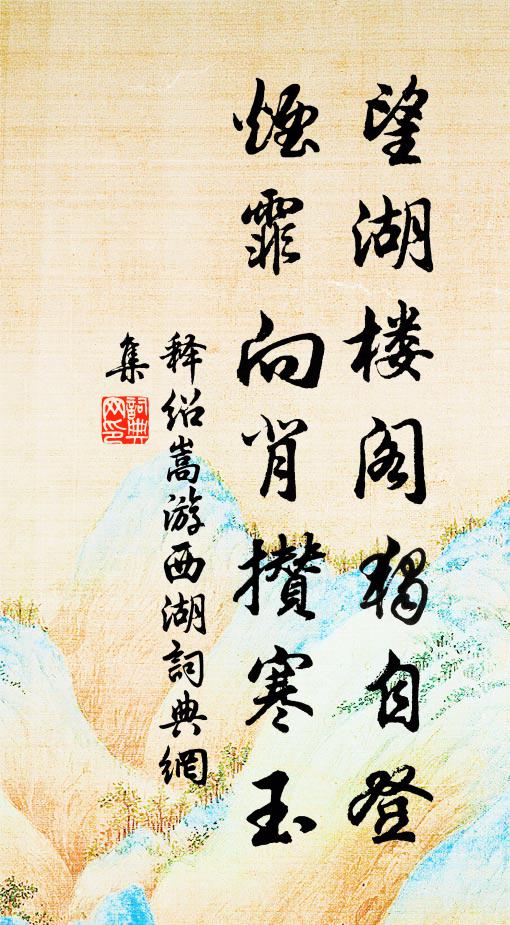 望湖楼阁独自登
煙霏向背攒寒玉
释绍嵩游西湖詞典網
集
詞典网印